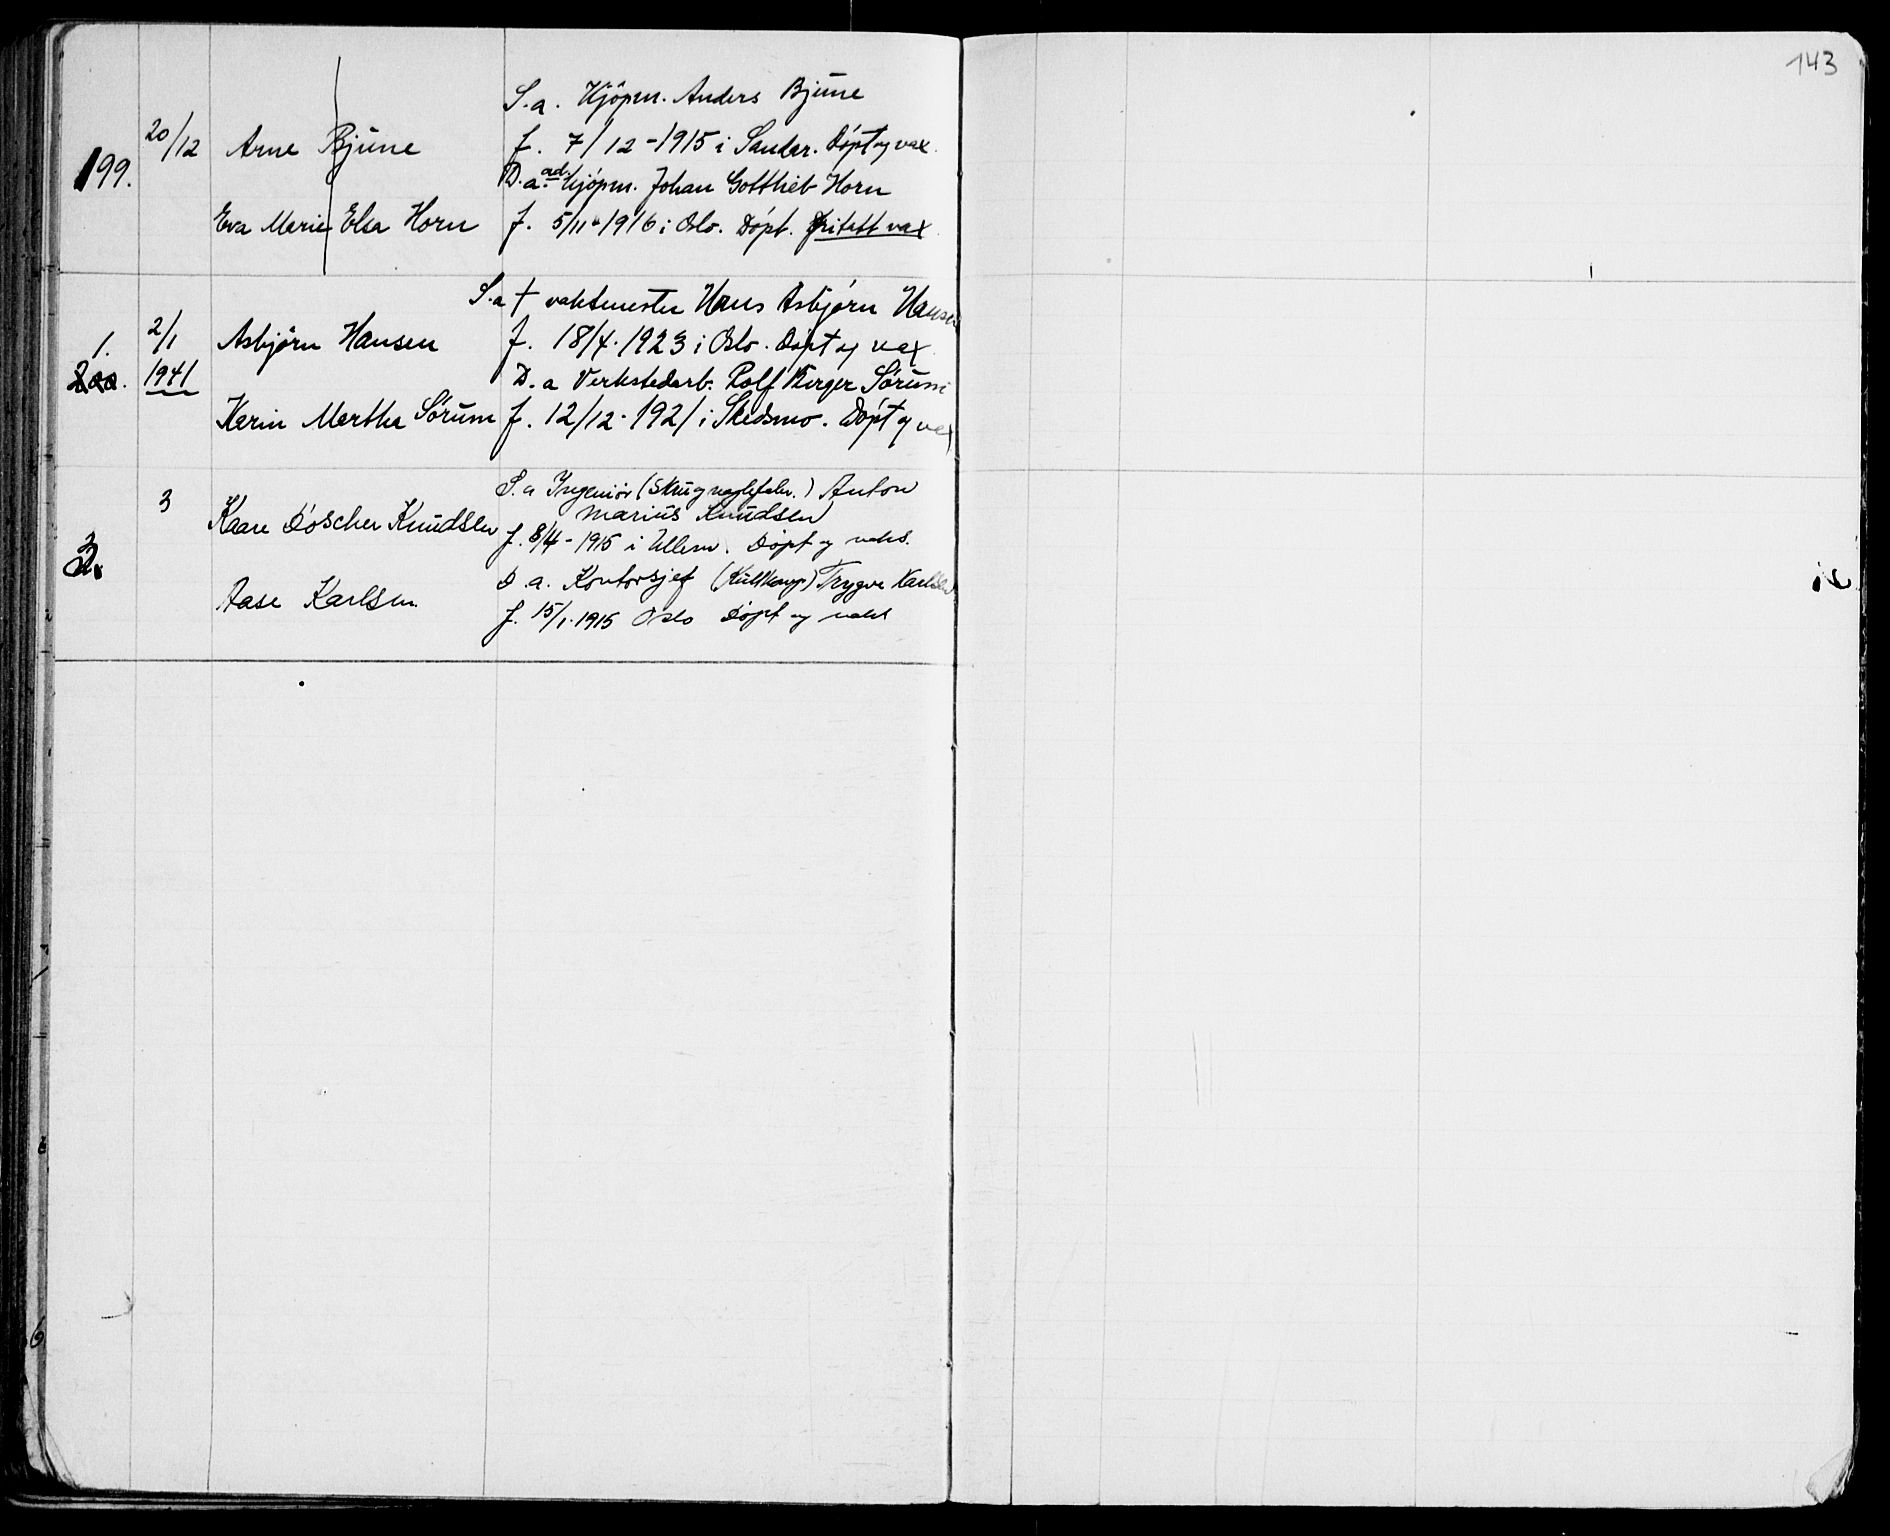 143
S.a. Kjøpm. Anders Bjune
199. 20/12 Arne Bjune f. 7/12-1915 i Sander. Døpt og vax.
D.a. ad. kjøpm. Johan Gottlieb Horn
Eva Marie Elsa Horn f. 5/11-1916 i Oslo. Døpt. fritatt vax
S.a † vaktmester Hans Asbjørn Hansen
1. 2/1 Asbjørn Hansen f. 18/4.1923 i Oslo. Døpt og vax.
200. 1941 D.a Verkstedarb. Rolf Birger Sørum
Karin Marthe Sørum f. 12/12.1921 i Skedsmo. Døpt og vax
3 S.a Ingeniør (Skru og naglefabr.) Anton
Kaare Doscher Knudsen Marius Knudsen
2. f. 8/4-1915 i Ullern. Døpt og vaks.
D.a. Kontorsjef Trygve Karlsen
Aase Karlsen. f. 15/1.1915 Oslo Døpt og vaks